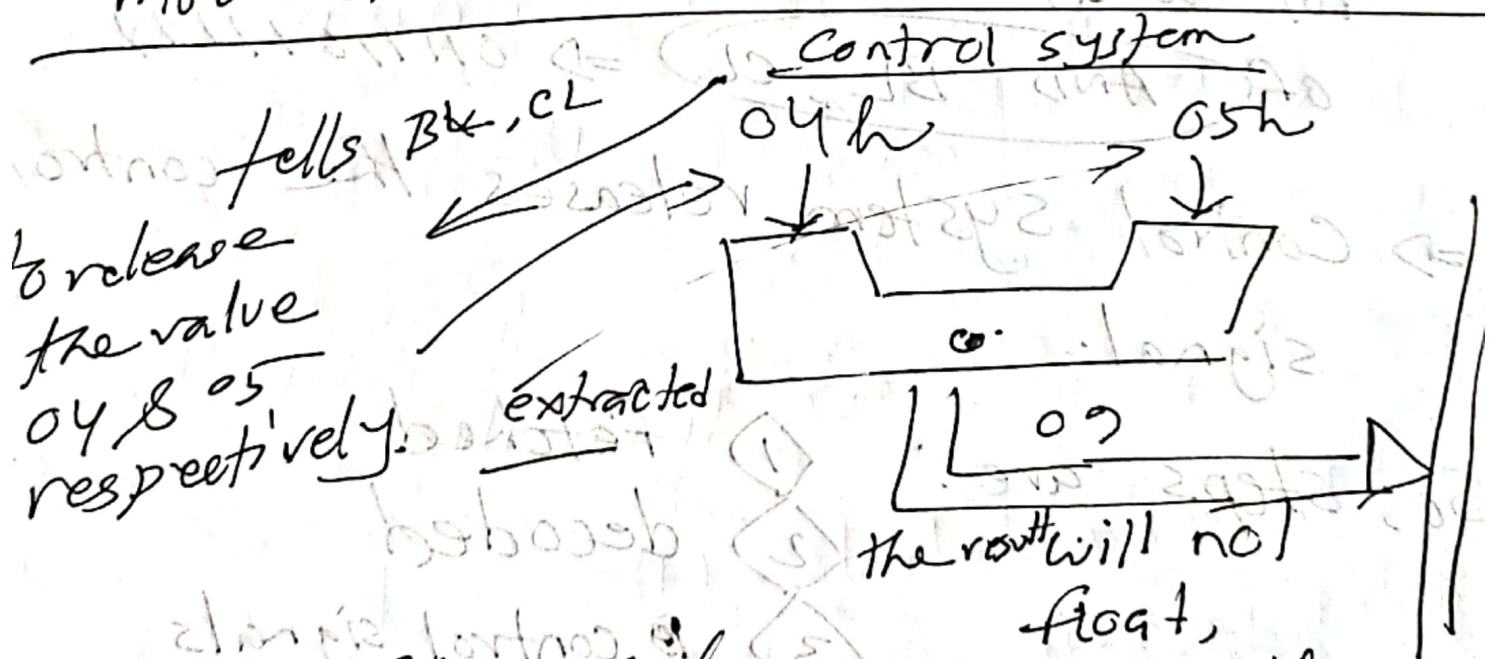 Control system
tells BL, CL
to release
the value
04 & 05
respectively.
extracted
04h
05h
09
the result will not
float,